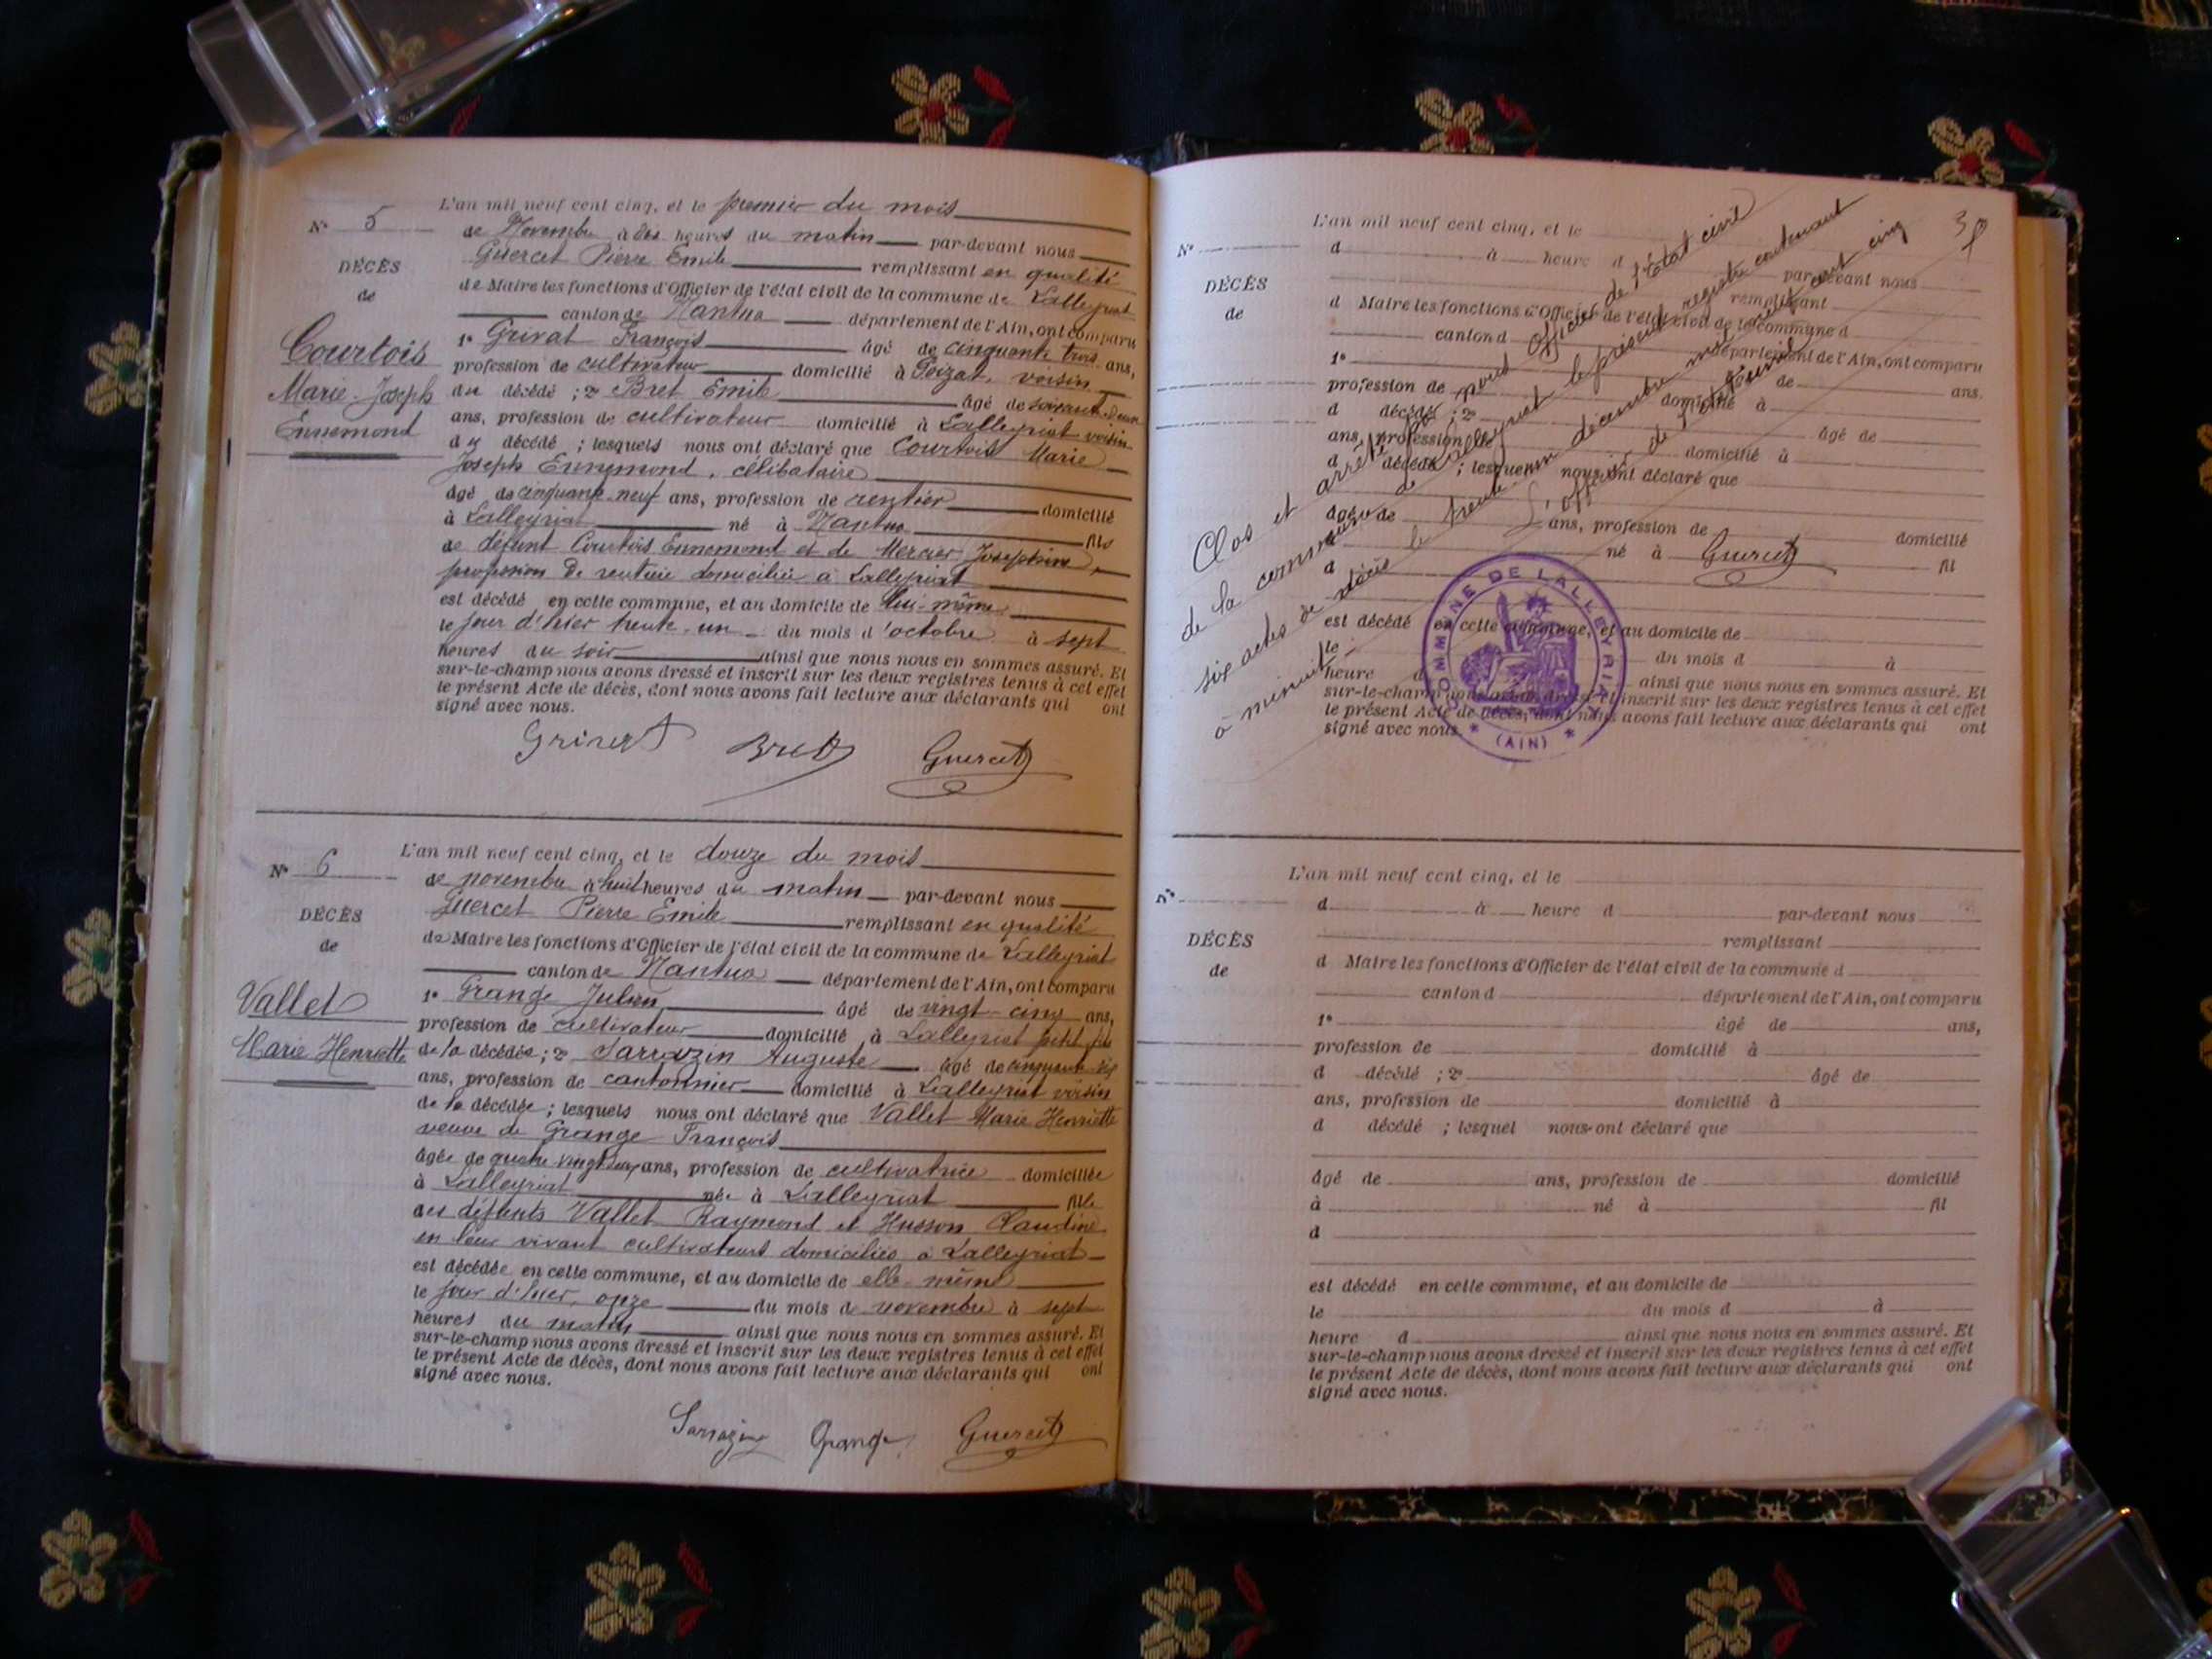 L'an mil neuf cent cinq, et le premier du mois
N° 5
de Novembre à dix heures du matin par-devant nous
Guercet Pierre Emile remplissant en qualité
DÉCÈS
de Maire les fonctions d'Officier de l'état civil de la commune de Lalleyriat
de
canton de Nantua département de l'Ain, ont comparu
Courtois
1° Grivat François âgé de cinquante trois ans,
profession de cultivateur domicilié à Poizat, voisin
Marie-Joseph
du décédé ; 2° Bret Emile âgé de soixante deux
Ennemond
ans, profession de cultivateur domicilié à Lalleyriat voisin
du décédé ; lesquels nous ont déclaré que Courtois Marie
Joseph Ennemond, célibataire
âgé de cinquante-neuf ans, profession de rentier domicilié
à Lalleyriat né à Nantua fils
de défunt Courtois Ennemond et de Mercier Josephine,
profession de rentière domiciliée à Lalleyriat
est décédé en cette commune, et au domicile de lui-même
le jour d'hier trente-un du mois d'octobre à sept
heures du soir ainsi que nous nous en sommes assuré. Et
sur-le-champ nous avons dressé et inscrit sur les deux registres tenus à cet effet
le présent Acte de décès, dont nous avons fait lecture aux déclarants qui ont
signé avec nous.
Grivat Bret Guercet
L'an mil neuf cent cinq, et le douze du mois
N° 6
de novembre à huit heures du matin par-devant nous
Guercet Pierre Emile remplissant en qualité
DÉCÈS
de Maire les fonctions d'Officier de l'état civil de la commune de Lalleyriat
de
canton de Nantua département de l'Ain, ont comparu
Vallet
1° Grange Julien âgé de vingt-cinq ans,
profession de cultivateur domicilié à Lalleyriat petit fils
Marie Henriette
de la décédée ; 2° Sarrazin Auguste âgé de cinquante-six
ans, profession de cantonnier domicilié à Lalleyriat voisin
de la décédée ; lesquels nous ont déclaré que Vallet Marie Henriette
veuve de Grange François
âgée de quatre vingt ans, profession de cultivatrice domiciliée
à Lalleyriat née à Lalleyriat fille
des défunts Vallet Raymond et Husson Claudine
en leur vivant cultivateurs domiciliés à Lalleyriat
est décédée en cette commune, et au domicile de elle-même
le jour d'hier, onze du mois de novembre à sept
heures du matin ainsi que nous nous en sommes assuré. Et
sur-le-champ nous avons dressé et inscrit sur les deux registres tenus à cet effet
le présent Acte de décès, dont nous avons fait lecture aux déclarants qui ont
signé avec nous.
Sarrazin Grange Guercet
3
L'an mil neuf cent cinq, et le
N°
d à heure d par-devant nous
DÉCÈS
remplissant
de
d Maire les fonctions d'Officier de l'état civil de la commune d
canton d département de l'Ain, ont comparu
1° de ans.
profession de domicilié à
d décédé ; 2° âgé de
ans, profession de domicilié à
d décédé ; lesquels nous ont déclaré que
âgé de ans, profession de domicilié
à né à fil
d
est décédé en cette commune, et au domicile de
le du mois d à
heure d ainsi que nous nous en sommes assuré. Et
sur-le-champ nous avons dressé et inscrit sur les deux registres tenus à cet effet
le présent Acte de décès, dont nous avons fait lecture aux déclarants qui ont
signé avec nous.
Clos et arrêté par nous Officier de l'État civil
de la commune de Lalleyriat le présent registre contenant
six actes de décès le trente-un décembre mil neuf cent cinq
à minuit.
L'officier de l'état civil
Guercet
COMMUNE DE LALLEYRIAT
* (AIN) *
L'an mil neuf cent cinq, et le
N°
d à heure d par-devant nous
DÉCÈS
remplissant
de
d Maire les fonctions d'Officier de l'état civil de la commune d
canton d département de l'Ain, ont comparu
1° âgé de ans,
profession de domicilié à
d décédé ; 2° âgé de
ans, profession de domicilié à
d décédé ; lesquel nous ont déclaré que
âgé de ans, profession de domicilié
à né à fil
d
est décédé en cette commune, et au domicile de
le du mois d à
heure d ainsi que nous nous en sommes assuré. Et
sur-le-champ nous avons dressé et inscrit sur les deux registres tenus à cet effet
le présent Acte de décès, dont nous avons fait lecture aux déclarants qui ont
signé avec nous.